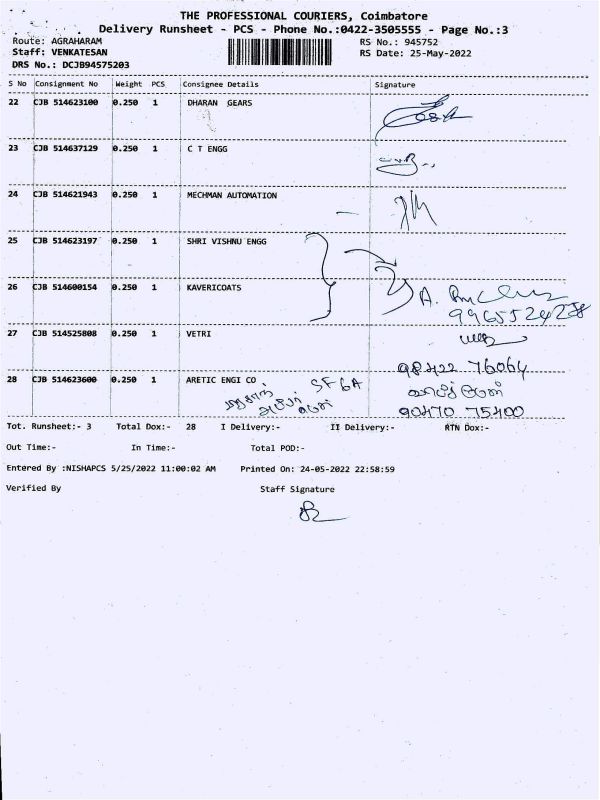 THE PROFESSIONAL COURIERS, Coimbatore
Delivery Runsheet - PCS - Phone No.:0422-3505555 - Page No.:3
Route: AGRAHARAM RS No.: 945752
Staff: VENKATESAN RS Date: 25-May-2022
DRS No.: DCJB94575203
S No Consignment No Weight PCS Consignee Details Signature
22 CJB 514623100 0.250 1 DHARAN GEARS
23 CJB 514637129 0.250 1 C T ENGG
24 CJB 514621943 0.250 1 MECHMAN AUTOMATION
25 CJB 514623197 0.250 1 SHRI VISHNU ENGG
26 CJB 514600154 0.250 1 KAVERICOATS A.
9965524238
27 CJB 514525808 0.250 1 VETRI
98422 76064
28 CJB 514623600 0.250 1 ARETIC ENGI CO SF 6A
90470 75400
Tot. Runsheet:- 3 Total Dox:- 28 I Delivery:- II Delivery:- RTN Dox:-
Out Time:- In Time:- Total POD:-
Entered By :NISHAPCS 5/25/2022 11:00:02 AM Printed On: 24-05-2022 22:58:59
Verified By Staff Signature